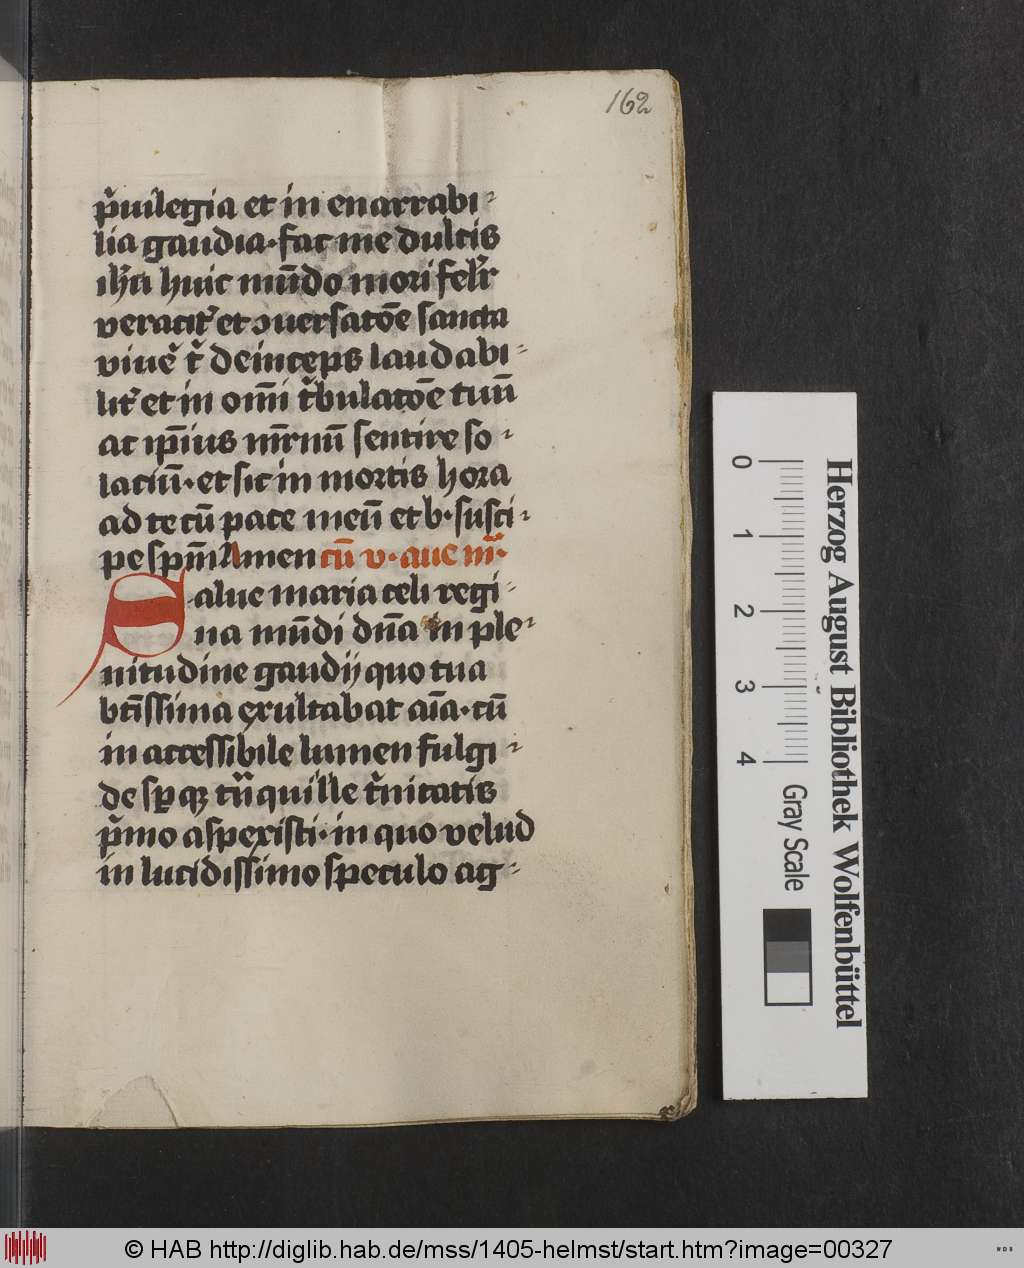 162
p̾uilegia et in enarrabi-
lia gaudia·fac me dulcis
ih̅u huic mu̅do mori felir̾
veracit̾ et ↄuersatoe̅ sancta
viue̾ t̾ deinceps laudabi-
lit̾ et in om̅i t̾bulatoe̅ tuu̅
ac ip̅ius mr̅nu̅ sentire so-
laciu̅·et sic in mortis hora
ad te cu̅ pace meu̅ et b·susci-
pe sp̅m Amen cu̅ v·aue m̅·
Salue maria celi regi-
na mu̅di dn̅a in ple-
nitudine gaudij quo tua
bt̅issima exultabat ai̅a·cu̅
in accessibile lumen fulgi-
de sꝑ qꝫ tn̅quille t̾nitatis
p̾mo aspexisti·in quo velud
in lucidissimo speculo ag-
0
1
2
3
4
Gray Scale
Herzog August Bibliothek Wolfenbüttel
© HAB http://diglib.hab.de/mss/1405-helmst/start.htm?image=00327